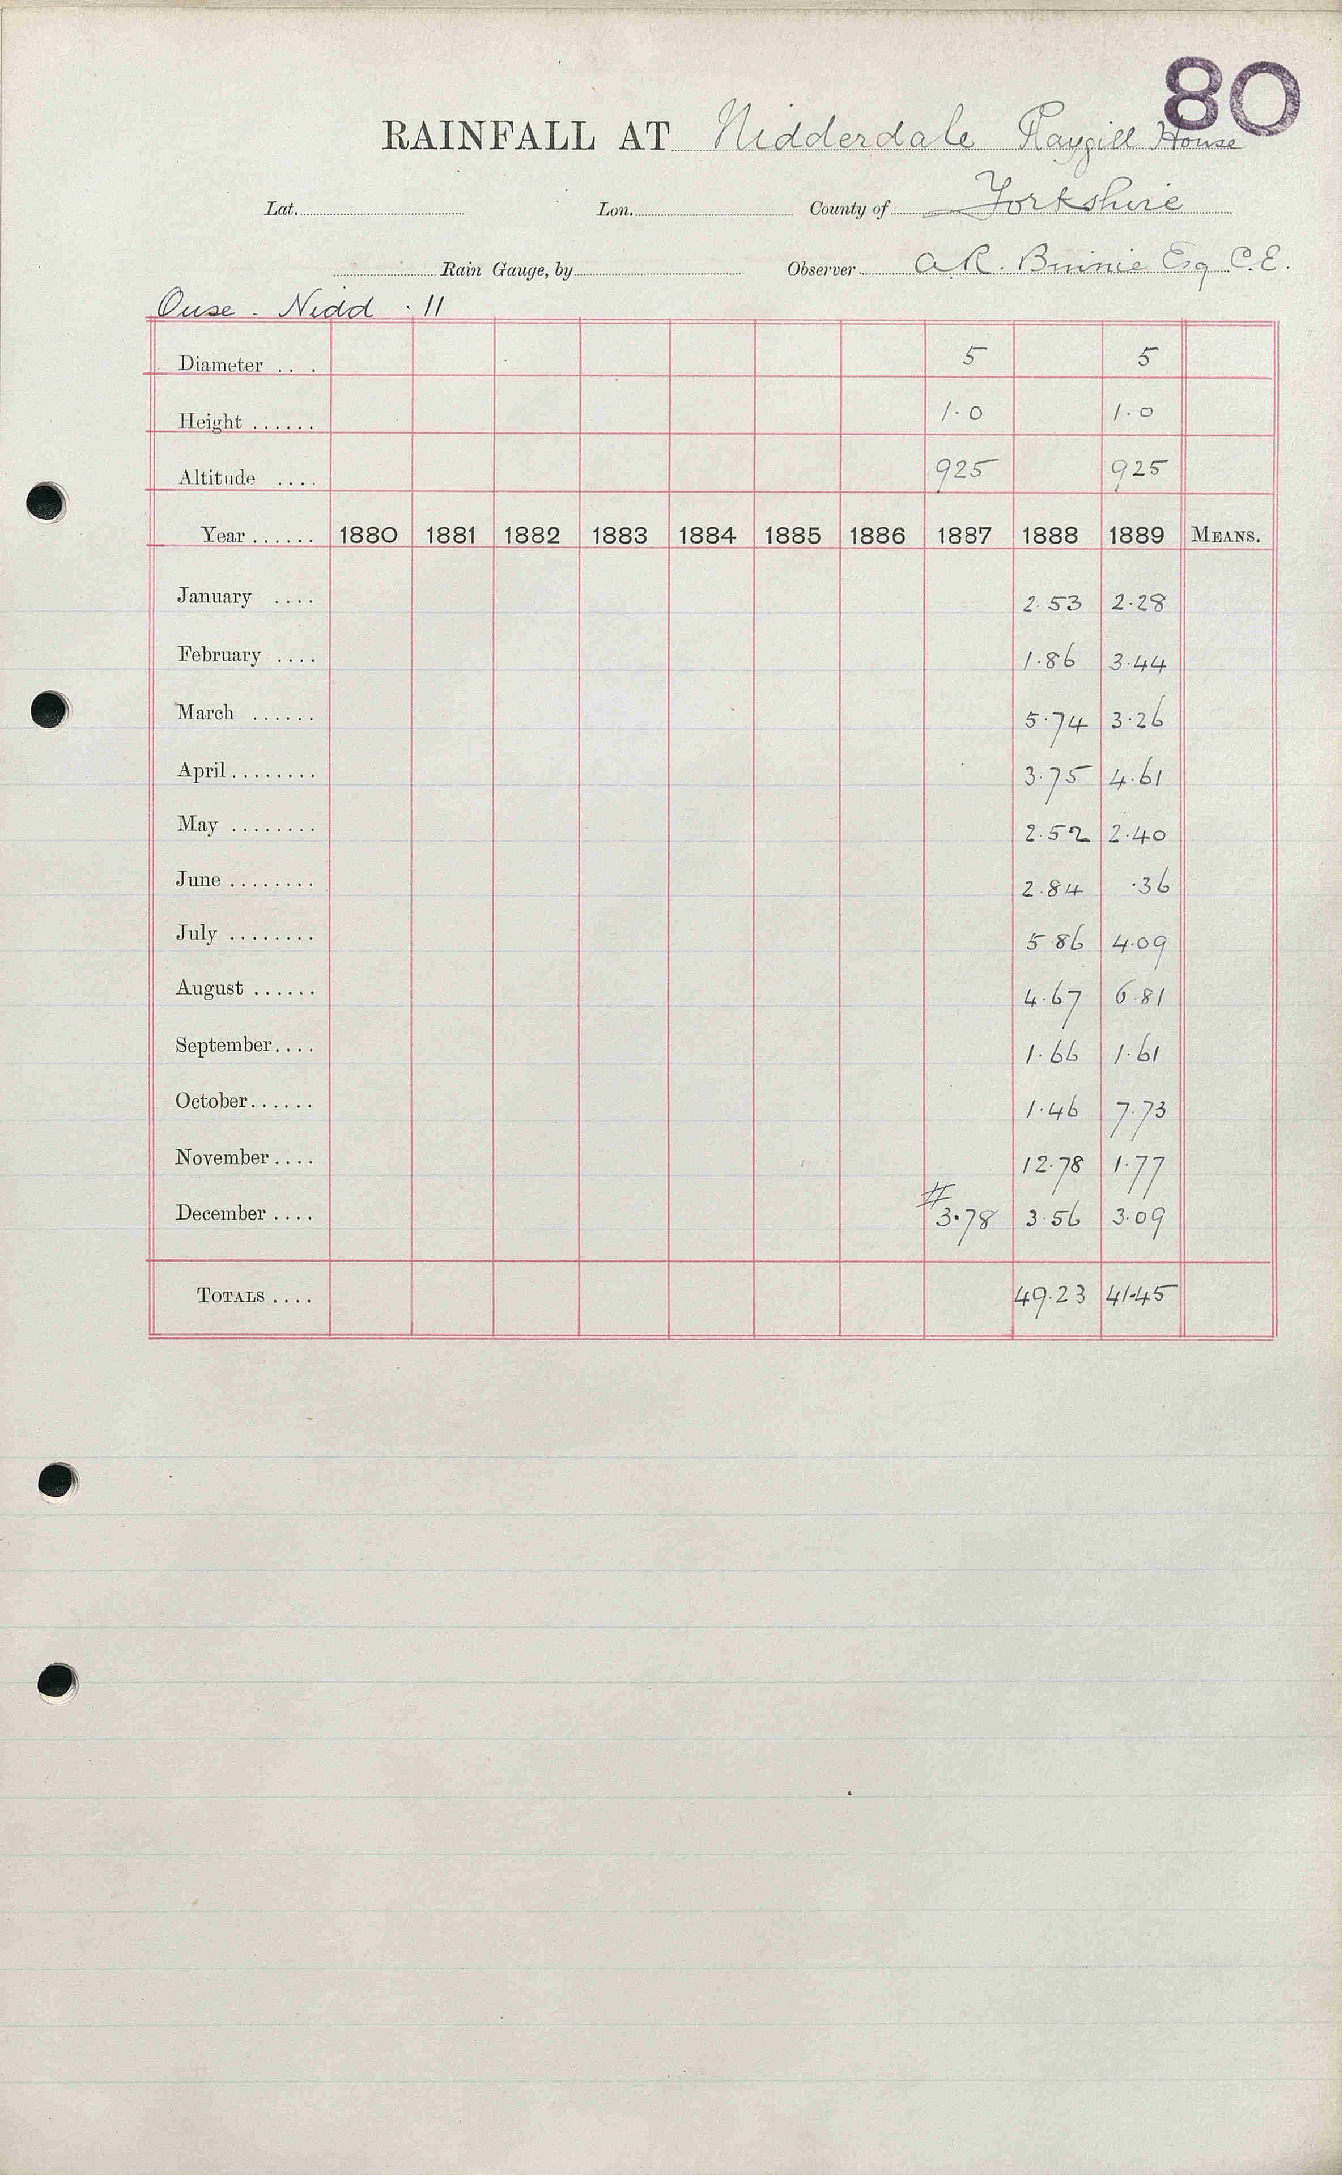 80
RAINFALL AT Nidderdale Raygill House
Lat. Lon. County of Yorkshire
Rain Gauge, by Observer A R. Binnie Esq C.E.
Ouse. Nidd . 11
Diameter .. . 5 5
Height ...... 1.0 1.0
Altitude .... 925 925
Year...... 1880 1881 1882 1883 1884 1885 1886 1887 1888 1889 MEANS.
January .... 2.53 2.28
February .... 1.86 3.44
March ...... 5.74 3.26
April........ 3.75 4.61
May ........ 2.52 2.40
June ........ 2.84 .36
July ........ 5.86 4.09
August ...... 4.67 6.81
September.... 1.66 1.61
October...... 1.46 7.73
November.... 12.78 1.77
December.... #3.78 3.56 3.09
TOTALS.... 49.23 41.45